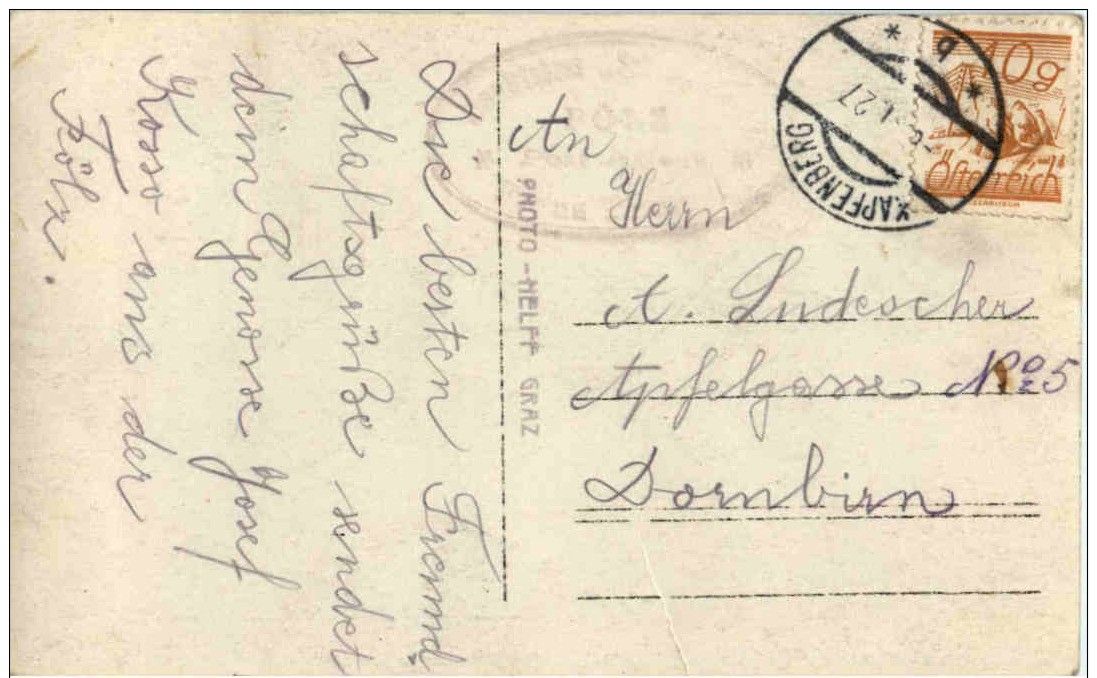 Die besten Freund-
schaftsgrüße sendet
dein Genosse Josef
Kosso aus der
Fölz.
PHOTO-HELFF GRAZ
An
Herrn
A. Ludescher
Apfelgasse No 5
Dornbirn
KAPFENBERG
27
b
10g
Österreich